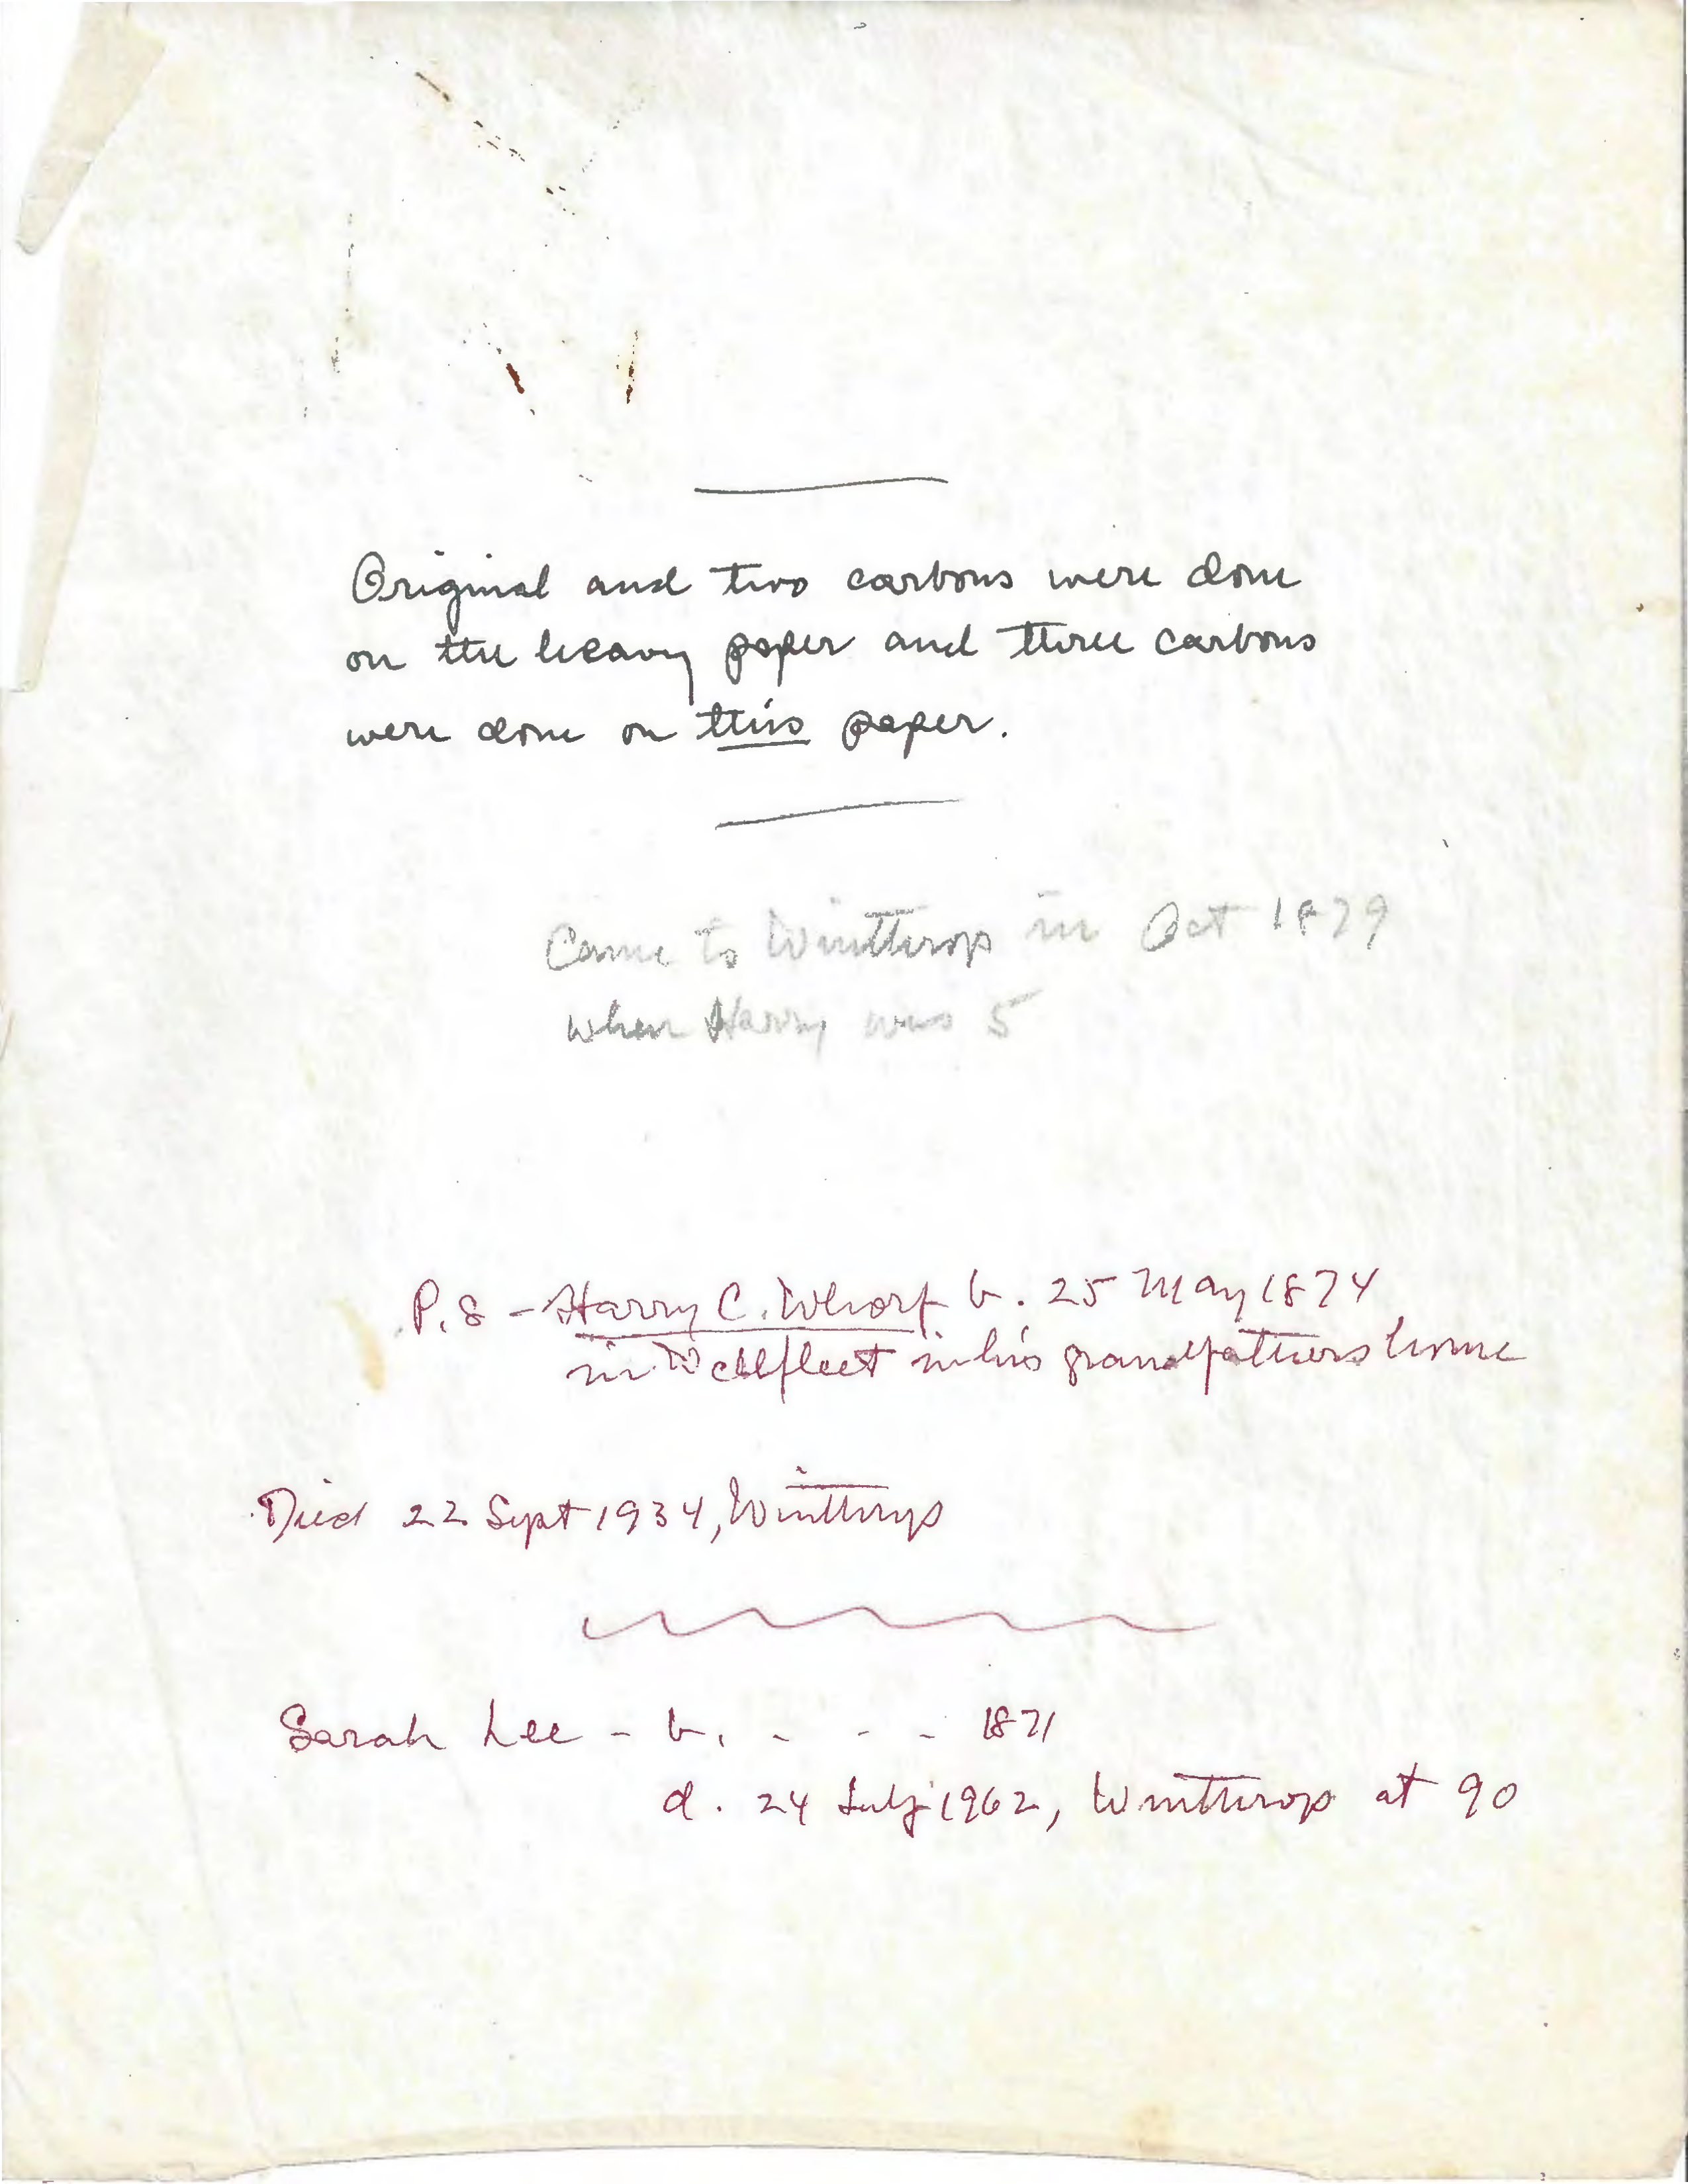 Original and two carbons were done
on the heavy paper and three carbons
were done on this paper.
Came to Winthrop in Oct 1879
when Harry was 5
P.S - Harry C. Whorf b. 25 May 1874
in Wellfleet in his grandfathers home
Died 22 Sept 1934, Winthrop
Sarah Lee - b. - - - 1871
d. 24 July 1962, Winthrop at 90